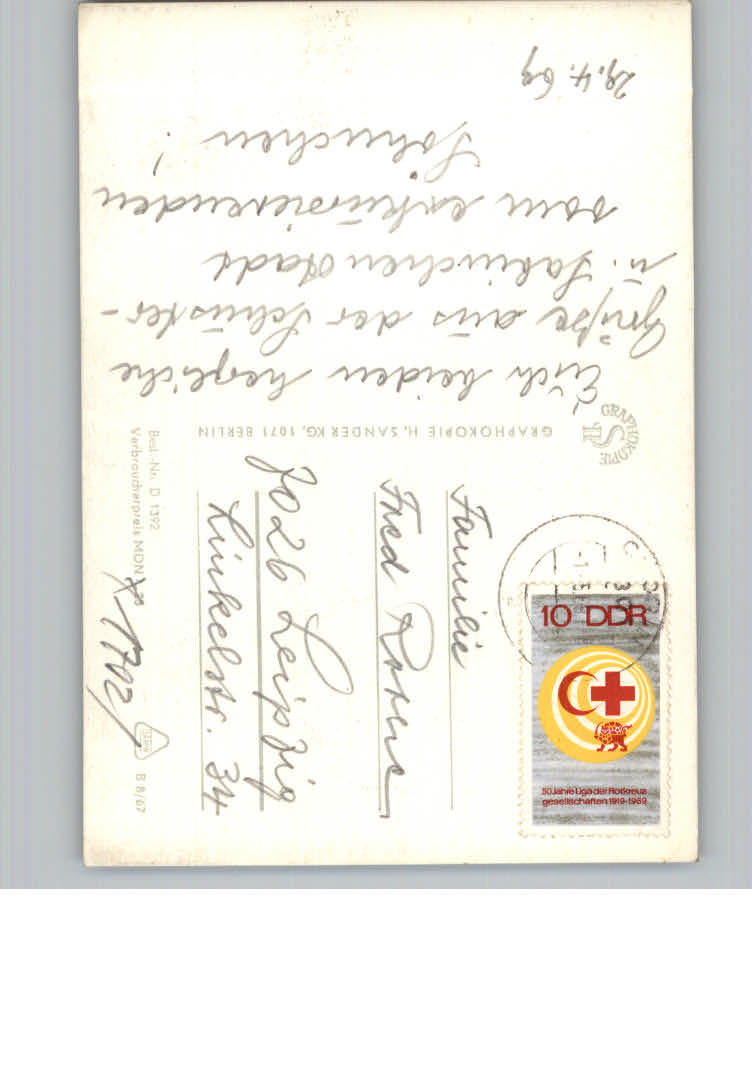 29.4.69
Euch beiden herzliche
Grüße aus der Schuster-
u. stadt
vom
Söhnchen!
GRAPHOKOPIE H. SANDER KG, 1071 BERLIN
GRAPHOKOPIE
HS
Best.-Nr. D 1392
Verbraucherpreis MDN
B 8/67
Familie
Fred
7026 Leipzig
Linkelstr. 34
10 DDR
50 Jahre Liga der Rotkreuz
gesellschaften 1919-1969